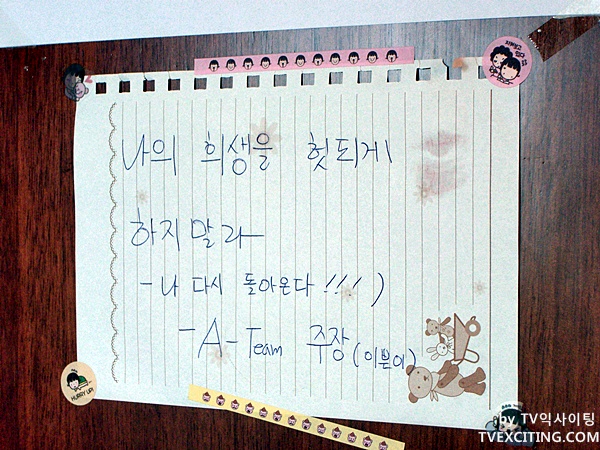 나의 희생을 헛되게
하지말라
- 나 다시 돌아온다 !!! )
- A - Team 주장 (이쁜이)
HURRY UP!
by TV익사이팅
TVEXCITING.COM